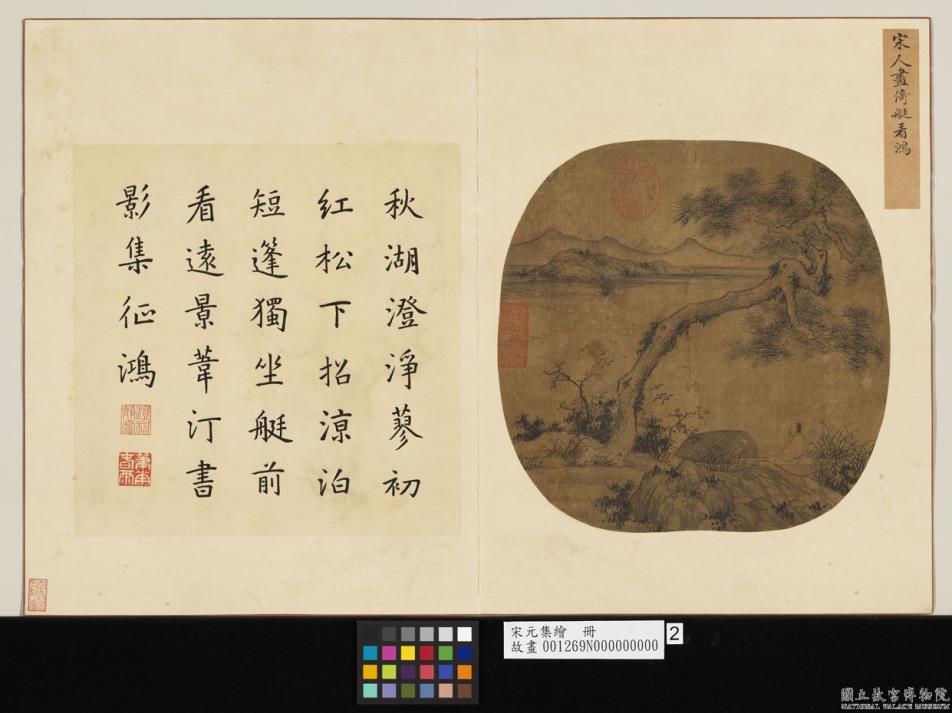 宋人畫倚艇看鴻
秋湖澄淨蓼初
紅松下招涼泊
短篷獨坐艇前
看遠景葦汀書
影集征鴻
宋元集繪　冊
故畫 001269N000000000
2
國立故宮博物院
NATIONAL PALACE MUSEUM